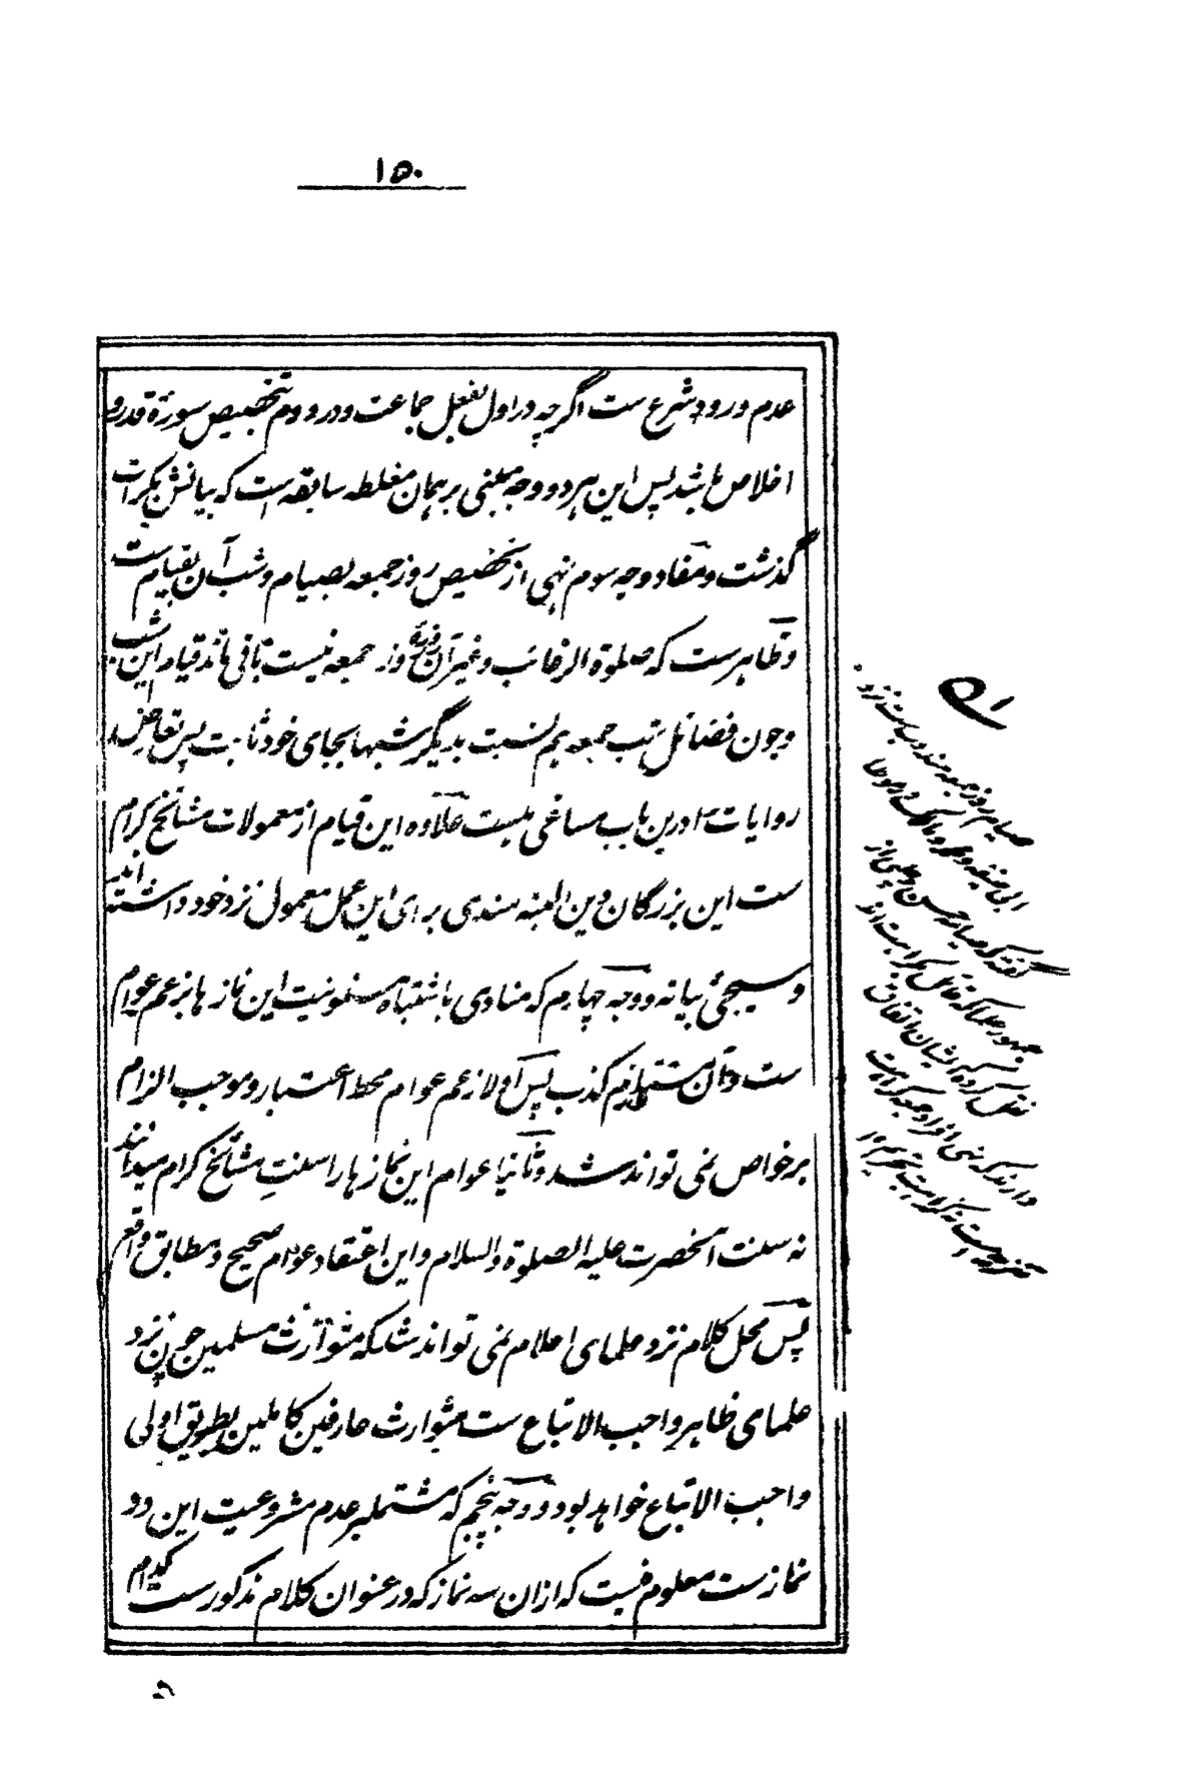 ۱۵۰
عدم ورود شرع ست اگرچه در اول بفعل جماعت و در دوم تخصیص سورهٔ قدر و
اخلاص باشد پس این هر دو وجه مبنی بر همان مغلطه سابقه است که بیانش بکرات
گذشت و مفاد وجه سوم نهی از تخصیص روز جمعه بصیام و شب آن بقیام ست
و ظاهرست که صلوة الرغائب و غیر آن روز جمعه نیست باقی ماند قیام این شب
و چون فضائل شب جمعه هم نسبت بدیگر شبها بجای خود ثابت پس تعارض
روایات را درین باب مساغی هست علاوه این قیام از معمولات مشائخ کرام
ست این بزرگان دین البته سندی برای این عمل معمول نزد خود داشته اند
و سیجئ بیانه و وجه چهارم که منادی باشتباه مسنونیت این نماز ها بزعم عوام
ست و آن مستلزم کذب پس اولا زعم عوام محط اعتبار و موجب الزام
بر خواص نمی تواند شد و ثانیا عوام این نماز ها را سنتِ مشائخ کرام میدانند
نه سنت آنحضرت علیه الصلوة والسلام و این اعتقاد عوام صحیح و مطابق واقع
پس محل کلام نزد علمای اعلام نمی تواند شد که متوارث مسلمین چون نزد
علمای ظاهر واجب الاتباع ست متوارث عارفین کاملین بطریق اولی
واجب الاتباع خواهد بود و وجه پنجم که مشتملبر عدم مشروعیت این دو
نمازست معلوم نیست که ازان سه نماز که در عنوان کلام مذکورست کدام
صیام روز جمعه مندوب ست نزد
ابی حنیفه و محمد و مالک
جمهور علما که قائل بکراهت اند
نقل کرده که ایشان اتفاق
دارند که نهی افراد جمعه کراهت
تنزیه است نه کراهت تحریم ۱۲